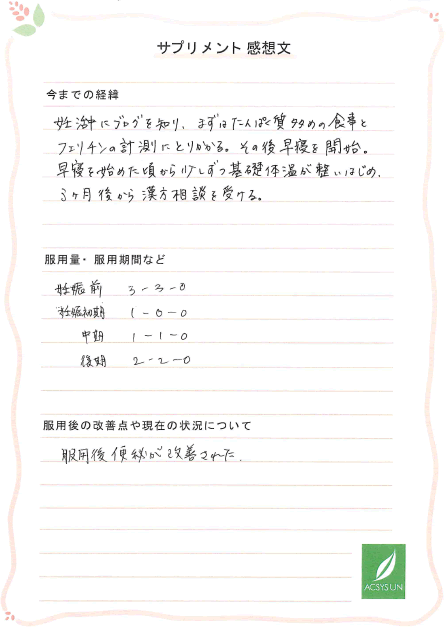 サプリメント 感想文
今までの経緯
妊活中にブログを知り、まずはたんぱく質多めの食事と
フェリチンの計測にとりかかる。その後早寝を開始。
早寝を始めた頃から少しずつ基礎体温が整いはじめ、
3ヶ月後から漢方相談を受ける。
服用量・服用期間など
妊娠前 3-3-0
妊娠初期 1-0-0
中期 1-1-0
後期 2-2-0
服用後の改善点や現在の状況について
服用後便秘が改善された.
ACSYSUN